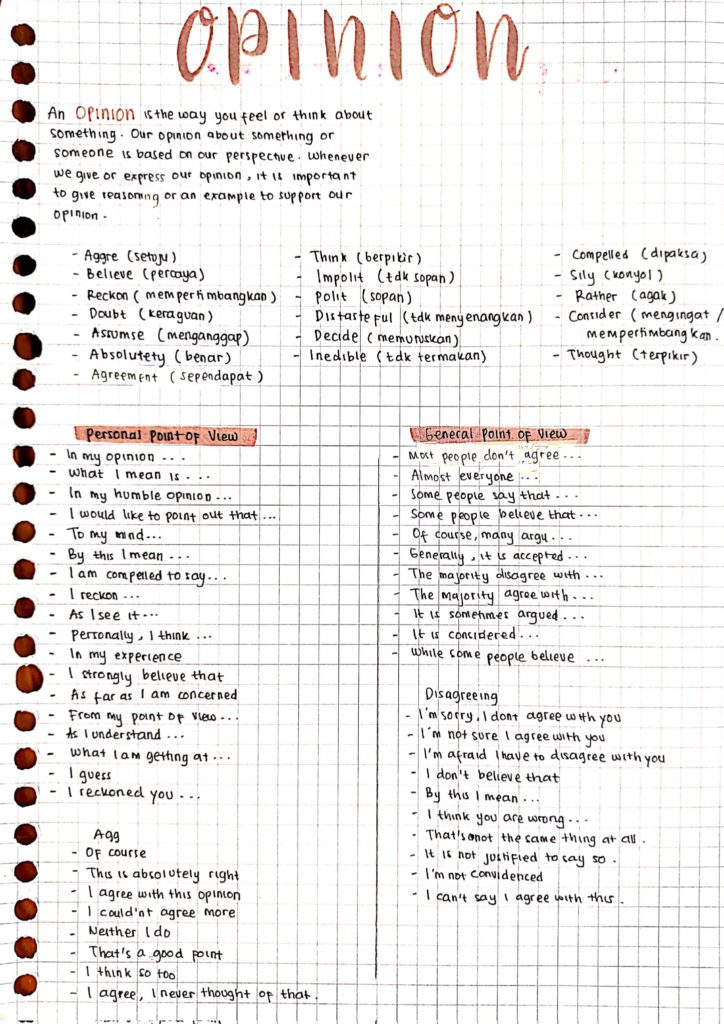 OPINION
An OPINION is the way you feel or think about
something. Our opinion about something or
someone is based on our perspective. Whenever
we give or express our opinion, it is important
to give reasoning or an example to support our
opinion.
- Aggre (setuju)
- Believe (percaya)
- Reckon (mempertimbangkan)
- Doubt (keraguan)
- Assumse (menganggap)
- Absolutety (benar)
- Agreement (sependapat)
- Think (berpikir)
- Impolit (tdk sopan)
- Polit (sopan)
- Distasteful (tdk menyenangkan)
- Decide (memutuskan)
- Inedible (tdk termakan)
- Compelled (dipaksa)
- Sily (konyol)
- Rather (agak)
- Consider (mengingat /
mempertimbangkan.
- Thought (terpikir)
Personal Point of View
- In my opinion ...
- What I mean is ...
- In my humble opinion ...
- I would like to point out that ...
- To my mind...
- By this I mean ...
- I am compelled to say...
- I reckon ...
- As I see it ...
- Personally, I think ...
- In my experience
- I strongly believe that
- As far as I am concerned
- From my point of view ...
- As I understand ...
- What I am getting at ...
- I guess
- I reckoned you ...
Agg
- Of course
- This is absolutely right
- I agree with this opinion
- I could'nt agree more
- Neither I do
- That's a good point
- I think so too
- I agree, I never thought of that.
General Point of View
- Most people don't agree ...
- Almost everyone ...
- Some people say that ...
- Some people believe that ...
- Of course, many argu...
- Generally, it is accepted...
- The majority disagree with ...
- The majority agree with ...
- It is sometimes argued ...
- It is considered ...
- While some people believe ...
Disagreeing
- I'm sorry, I dont agree with you
- I'm not sure I agree with you
- I'm afraid I have to disagree with you
- I don't believe that
- By this I mean ...
- I think you are wrong ...
- That's not the same thing at all.
- It is not justified to say so.
- I'm not convidenced
- I can't say I agree with this.